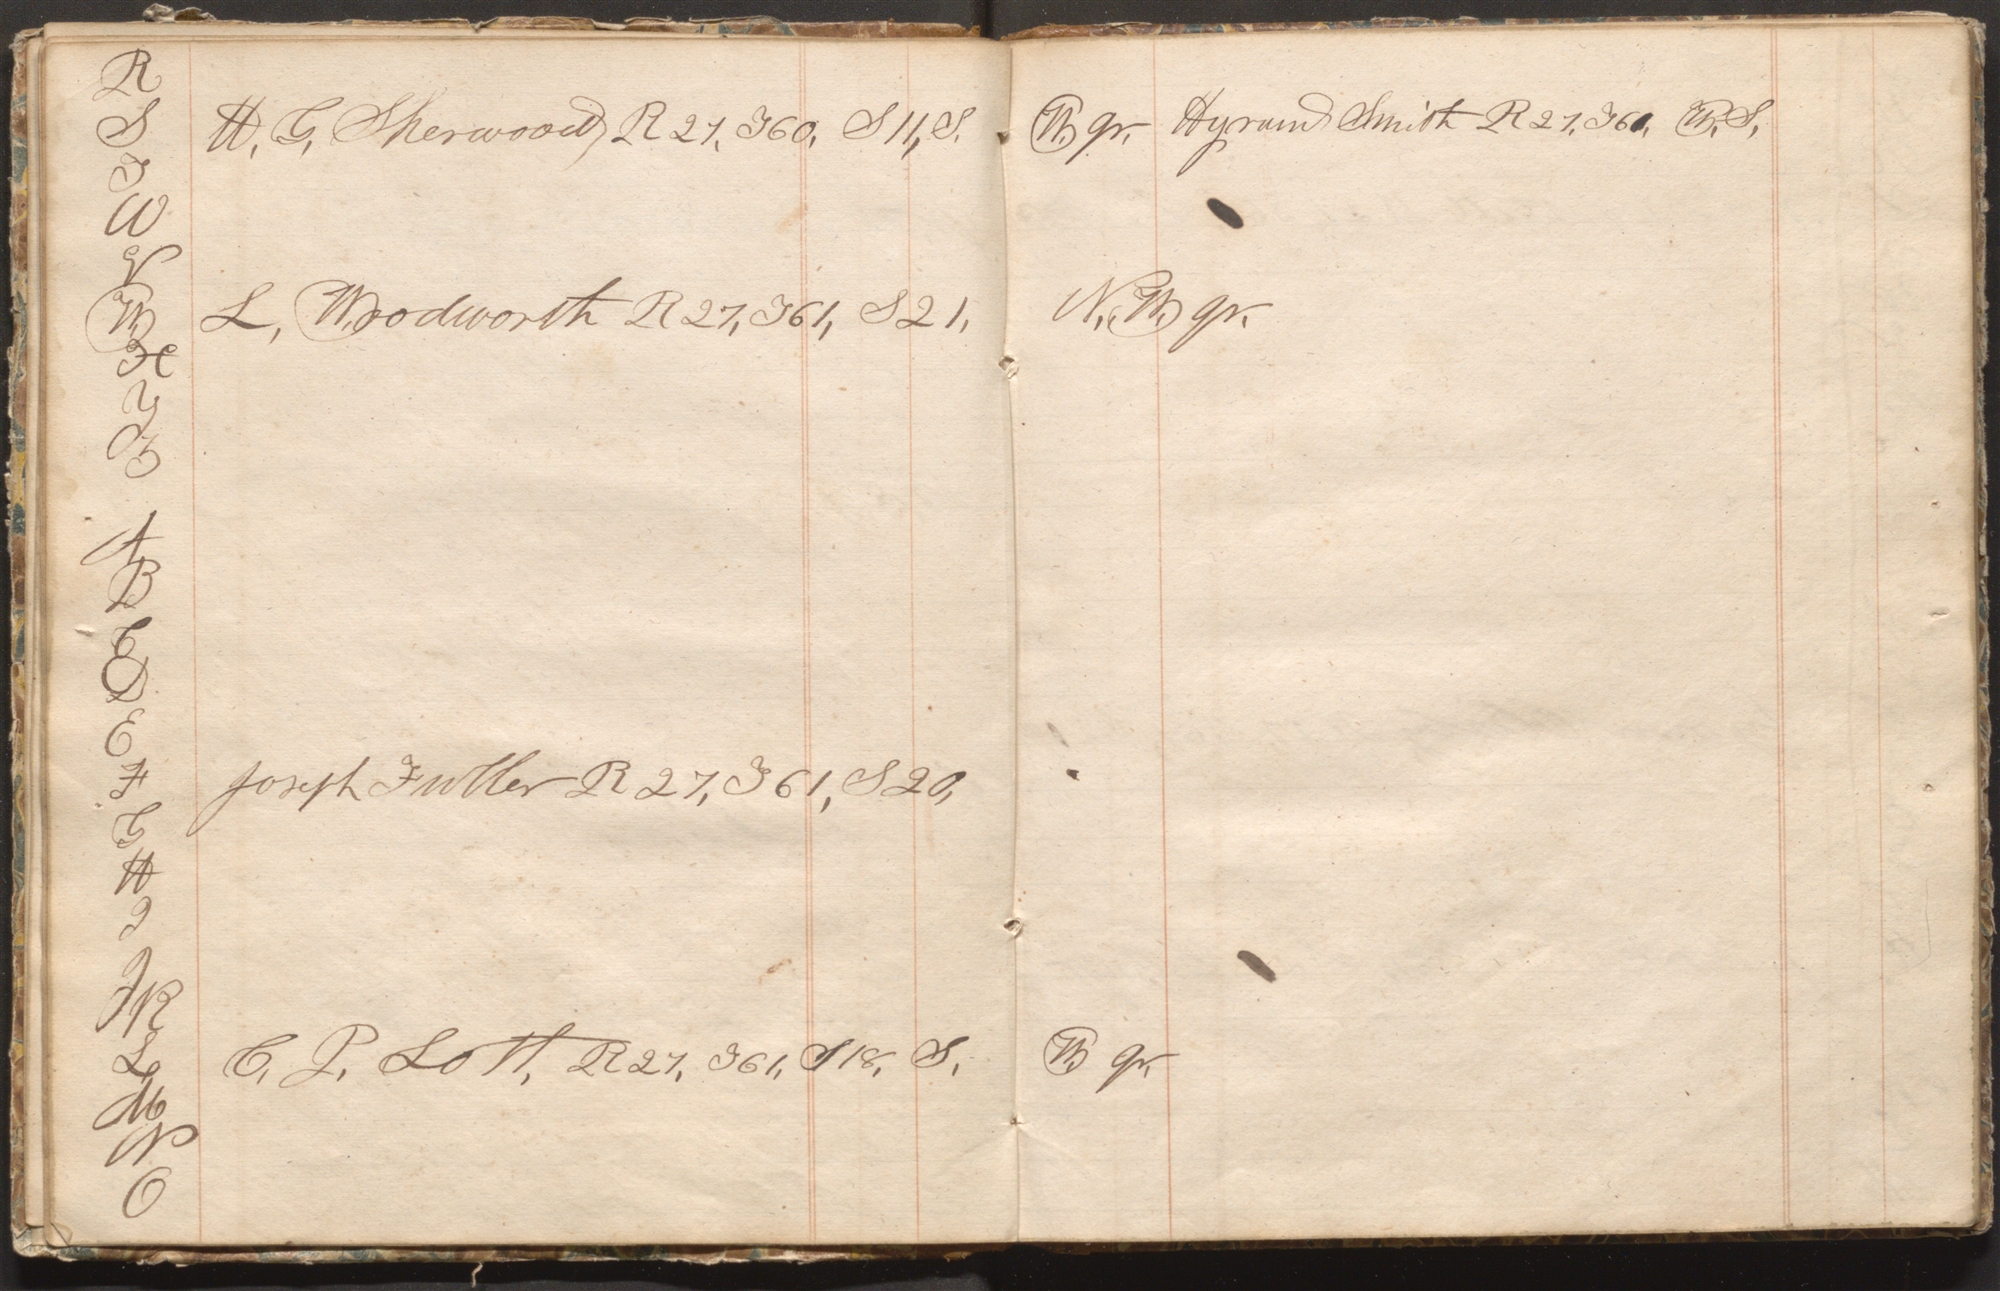 R
S
T
W
V
W
X
Y
Z
A
B
C
D
E
F
G
H
I
J K
L
M
N
O
H. G. Sherwood R 27, T 60, S 11, S. W. qr. Hyrum Smith R 27, T 60, W. S.
L. Woodworth R 27, T 61, S 21, N. W. qr.
Joseph Fuller R 27, T 61, S 20,
C. P. Lott, R 27, T 61, S 18, S. W qr.